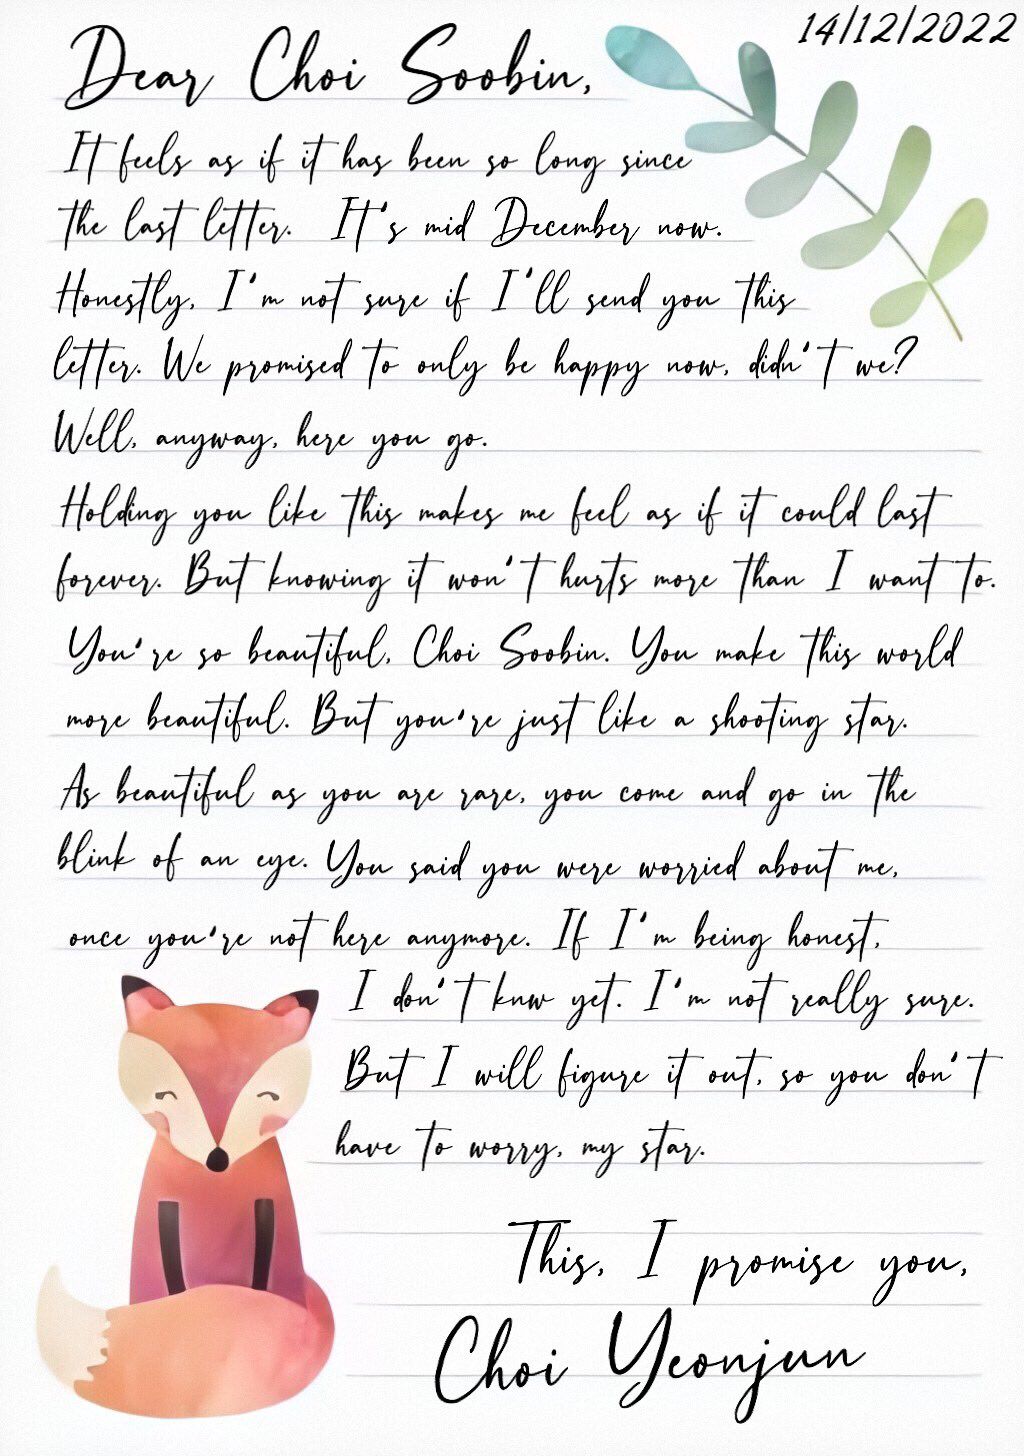 14/12/2022
Dear Choi Soobin,
It feels as if it has been so long since
the last letter. It's mid December now.
Honestly, I'm not sure if I'll send you this
letter. We promised to only be happy now, didn't we?
Well, anyway, here you go.
Holding you like this makes me feel as if it could last
forever. But knowing it won't hurts more than I want to.
You're so beautiful, Choi Soobin. You make this world
more beautiful. But you're just like a shooting star.
As beautiful as you are rare, you come and go in the
blink of an eye. You said you were worried about me,
once you're not here anymore. If I'm being honest,
I don't knw yet. I'm not really sure.
But I will figure it out, so you don't
have to worry, my star.
This, I promise you,
Choi Yeonjun